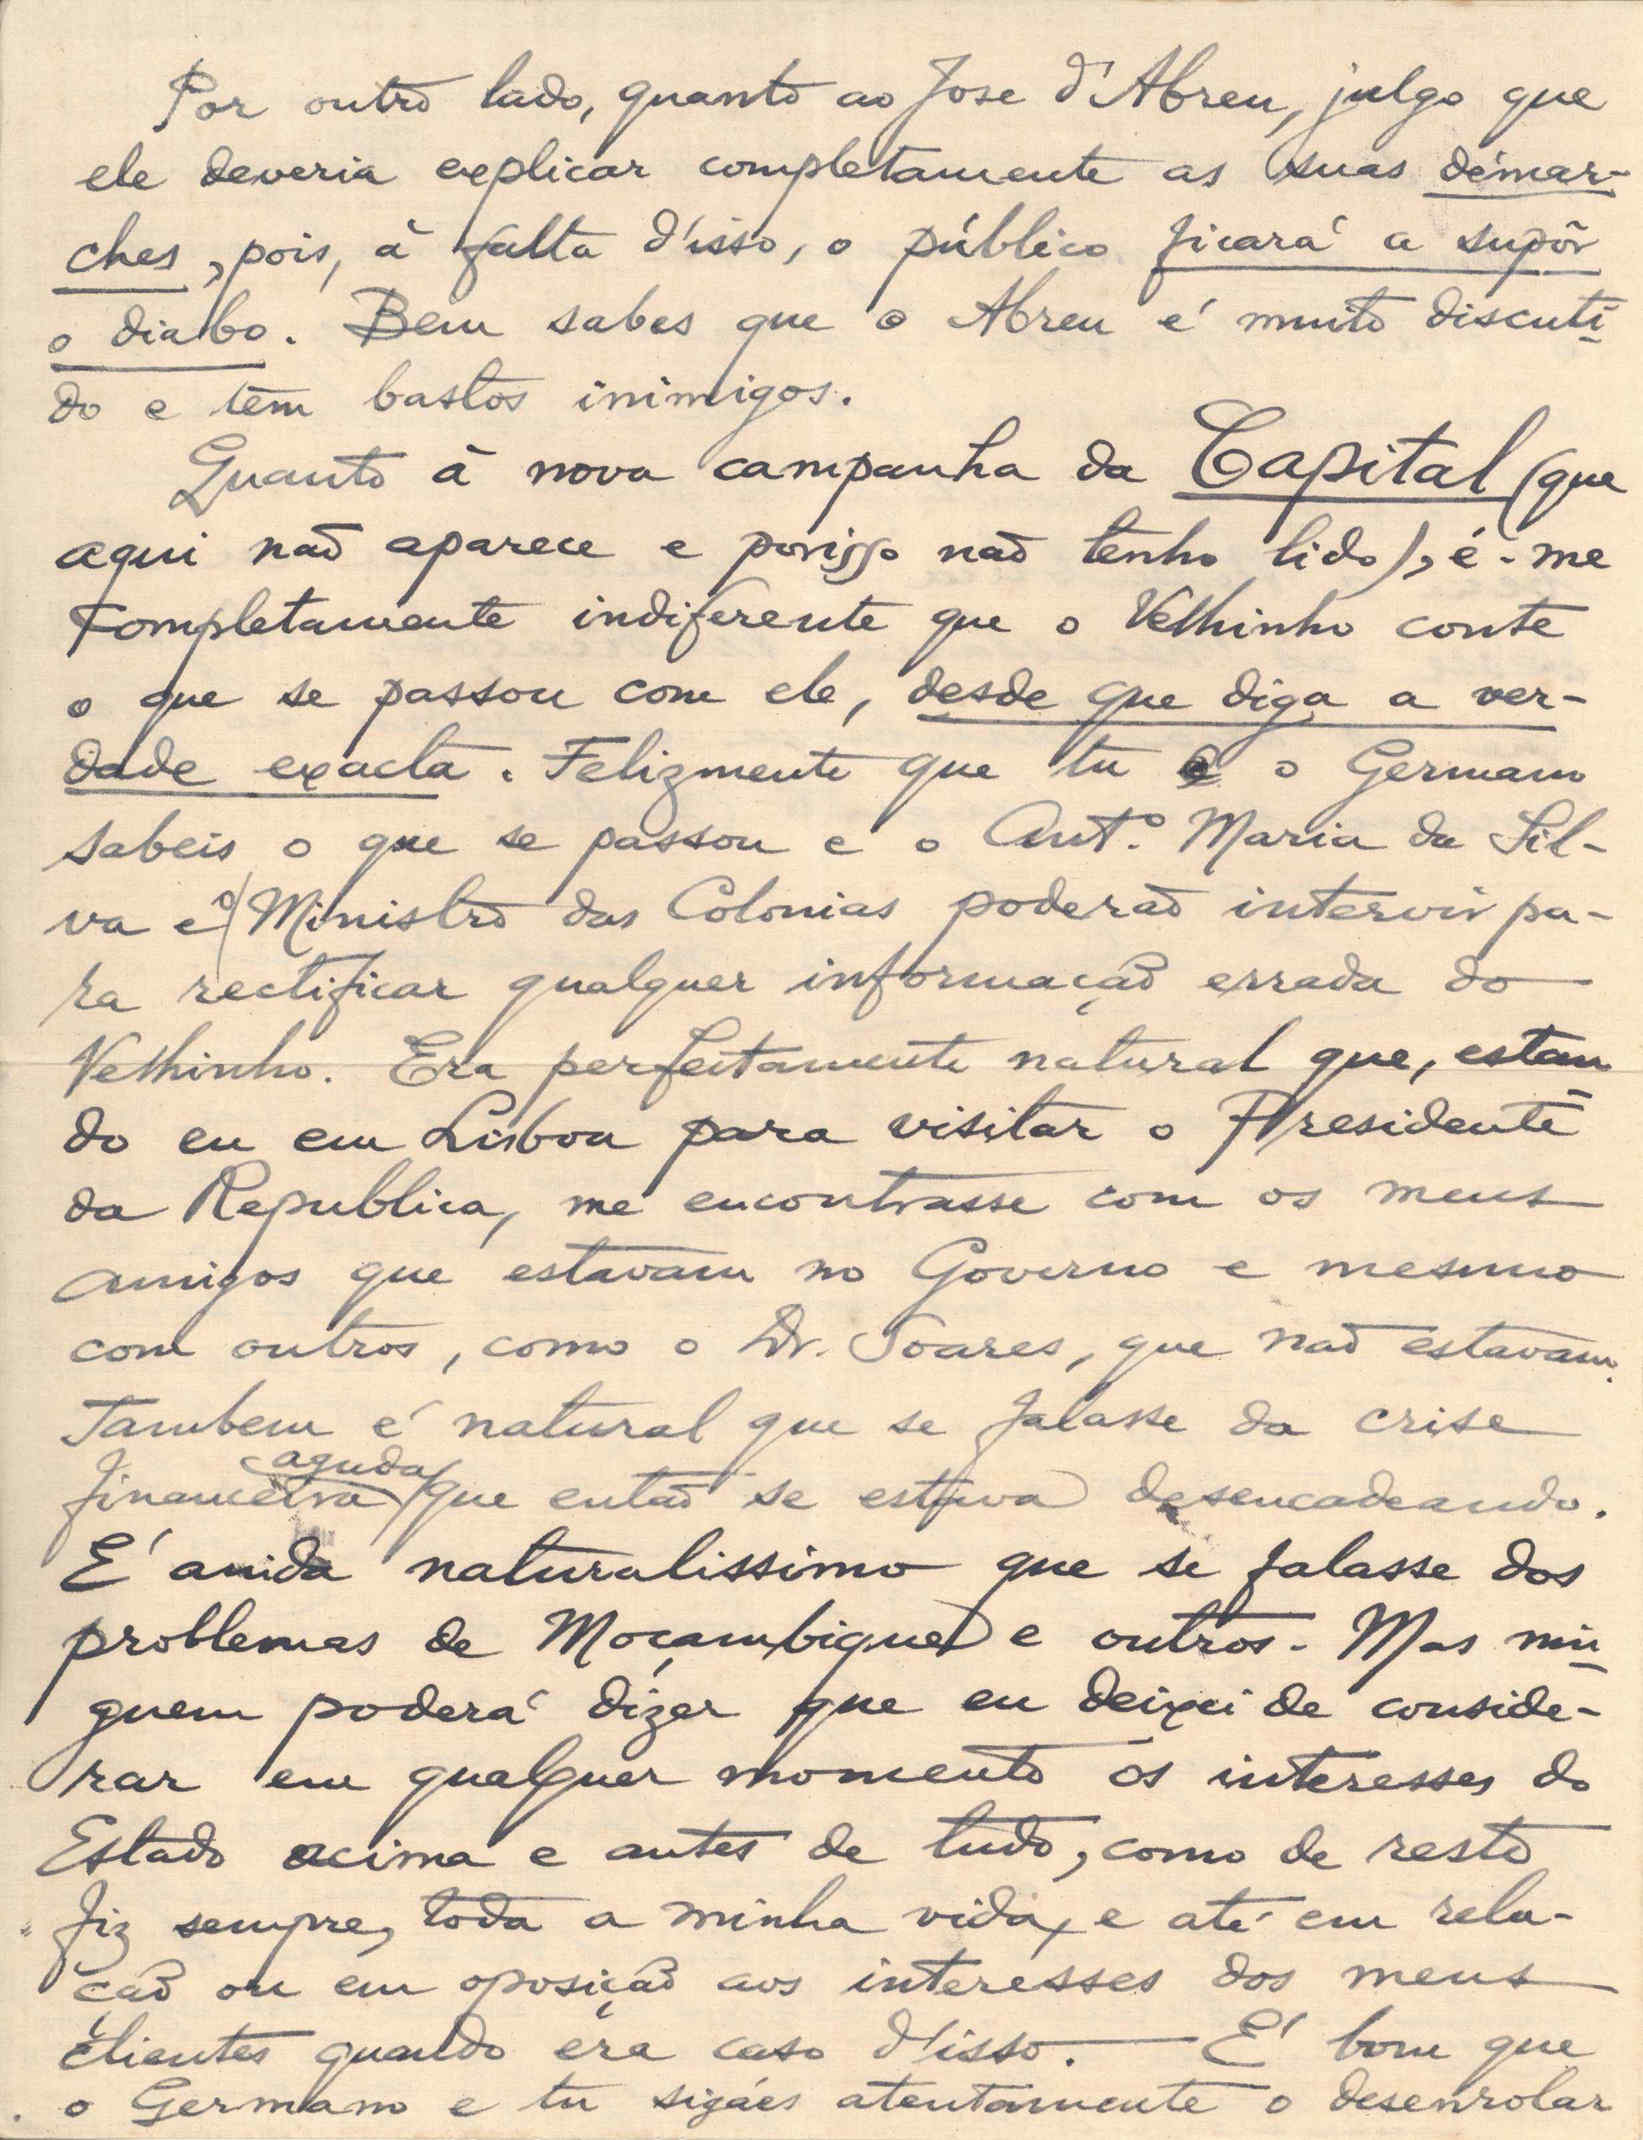 Por outro lado, quanto ao Jose d'Abreu, julgo que
ele deveria explicar completamente as suas démar-
ches, pois, à falta d'isso, o público ficará a supôr
o diabo. Bem sabes que o Abreu é muito discuti-
do e tem bastos inimigos.
Quanto à nova campanha da Capital (que
aqui não aparece e porisso não tenho lido), é-me
completamente indiferente que o Velhinho conte
o que se passou com ele, desde que diga a ver-
dade exacta. Felizmente que tu e o Germano
sabeis o que se passou e o Antº. Maria da Sil-
va e o Ministro das Colonias poderão intervir pa-
ra rectificar qualquer informação errada do
Velhinho. Era perfeitamente natural que, estan-
do eu em Lisboa para visitar o Presidente
da Republica, me encontrasse com os meus
amigos que estavam no Governo e mesmo
com outros, como o Dr. Soares, que não estavam.
Tambem é natural que se falasse da crise
financeira aguda que então se estava desencadeando.
É ainda naturalissimo que se falasse dos
problemas de Moçambique e outros. Mas nin-
guem poderá dizer que eu deixei de conside-
rar em qualquer momento os interesses do
Estado acima e antes de tudo, como de resto
fiz sempre, toda a minha vida, e até em rela-
ção ou em oposição aos interesses dos meus
clientes quando era caso d'isso. — É bom que
o Germano e tu sigáes atentamente o desenrolar